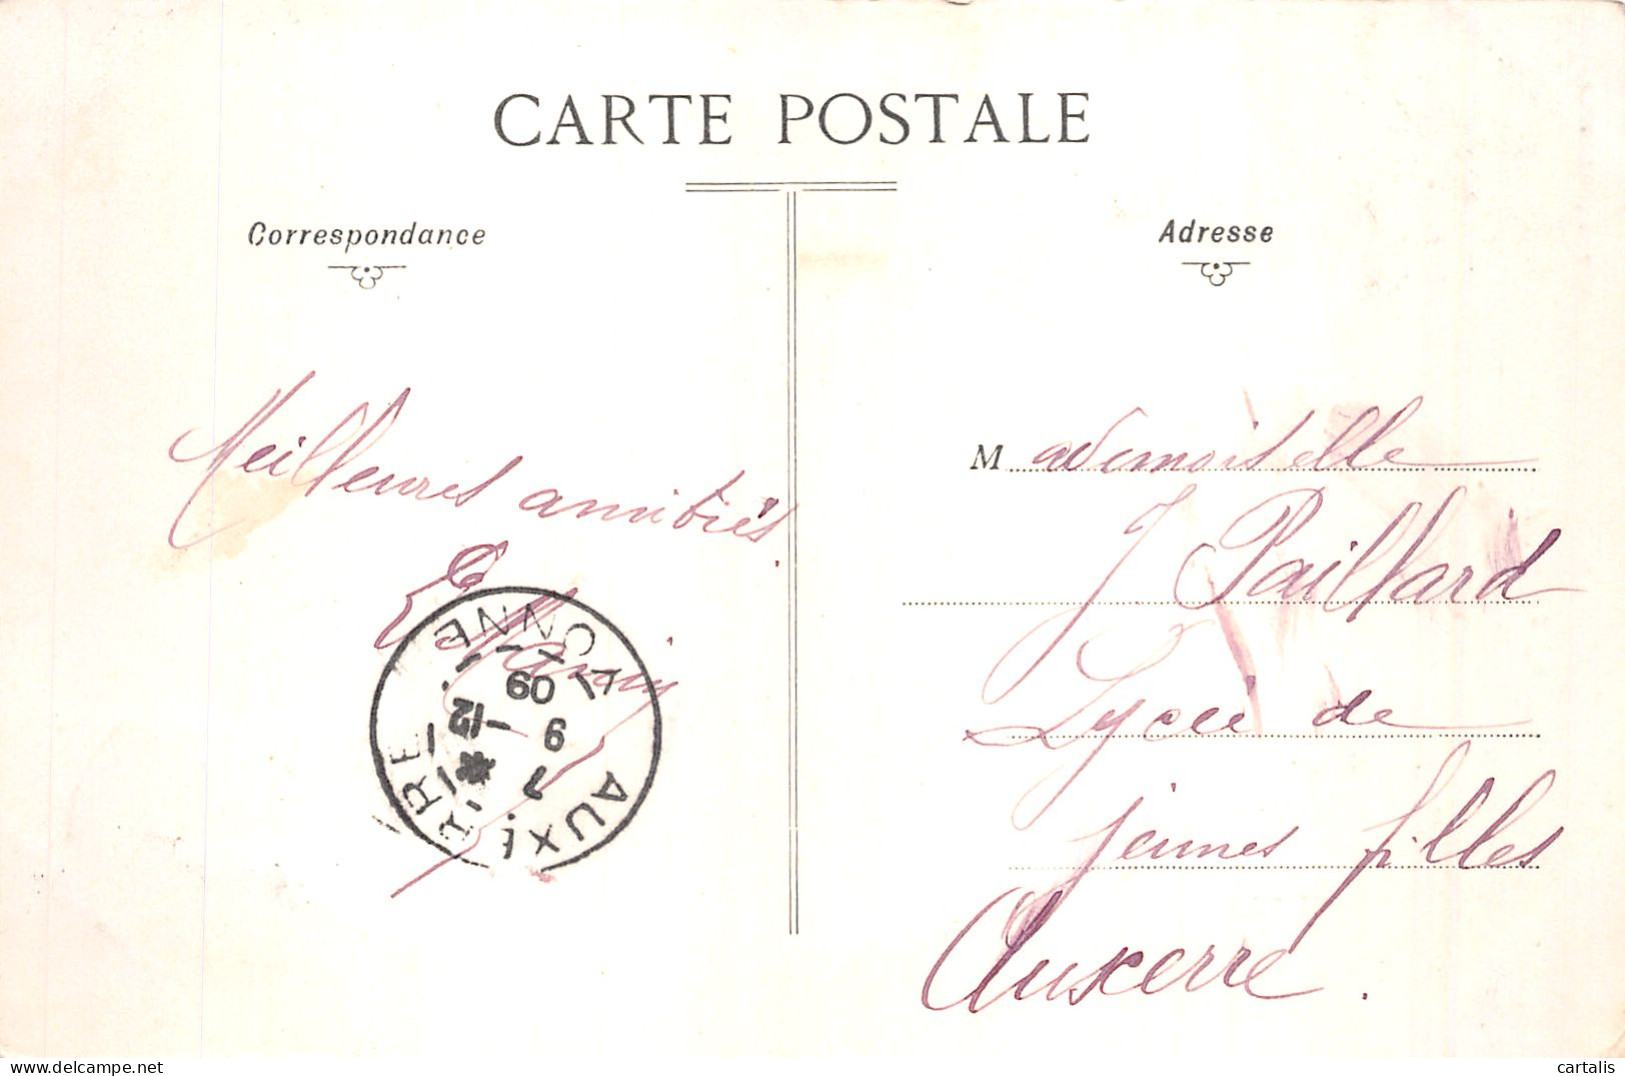 CARTE POSTALE
Correspondance
Adresse
Meilleures amitiés.
E
Mademoiselle
J Paillard
Lycée de
jeunes filles
Auxerre.
AUXERRE
YONNE
12
7
9
09
cartalis
www.delcampe.net